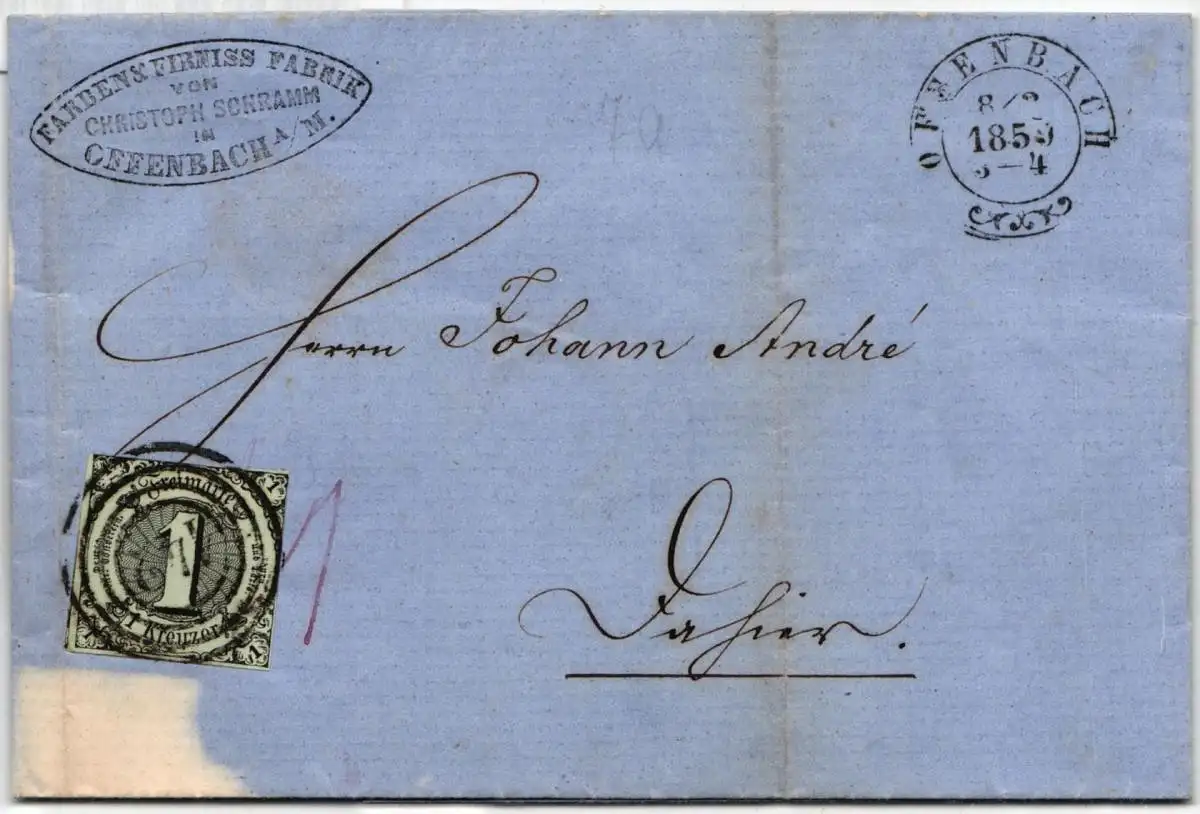 FARBEN & FIRNISS FABRIK
VON
CHRISTOPH SCHRAMM
IN
OFFENBACH A/M.
OFFENBACH
1859
3–4
70
Herrn Johann André
Dahier.
Freimarke
1
1 Kreuzer
1
1
1